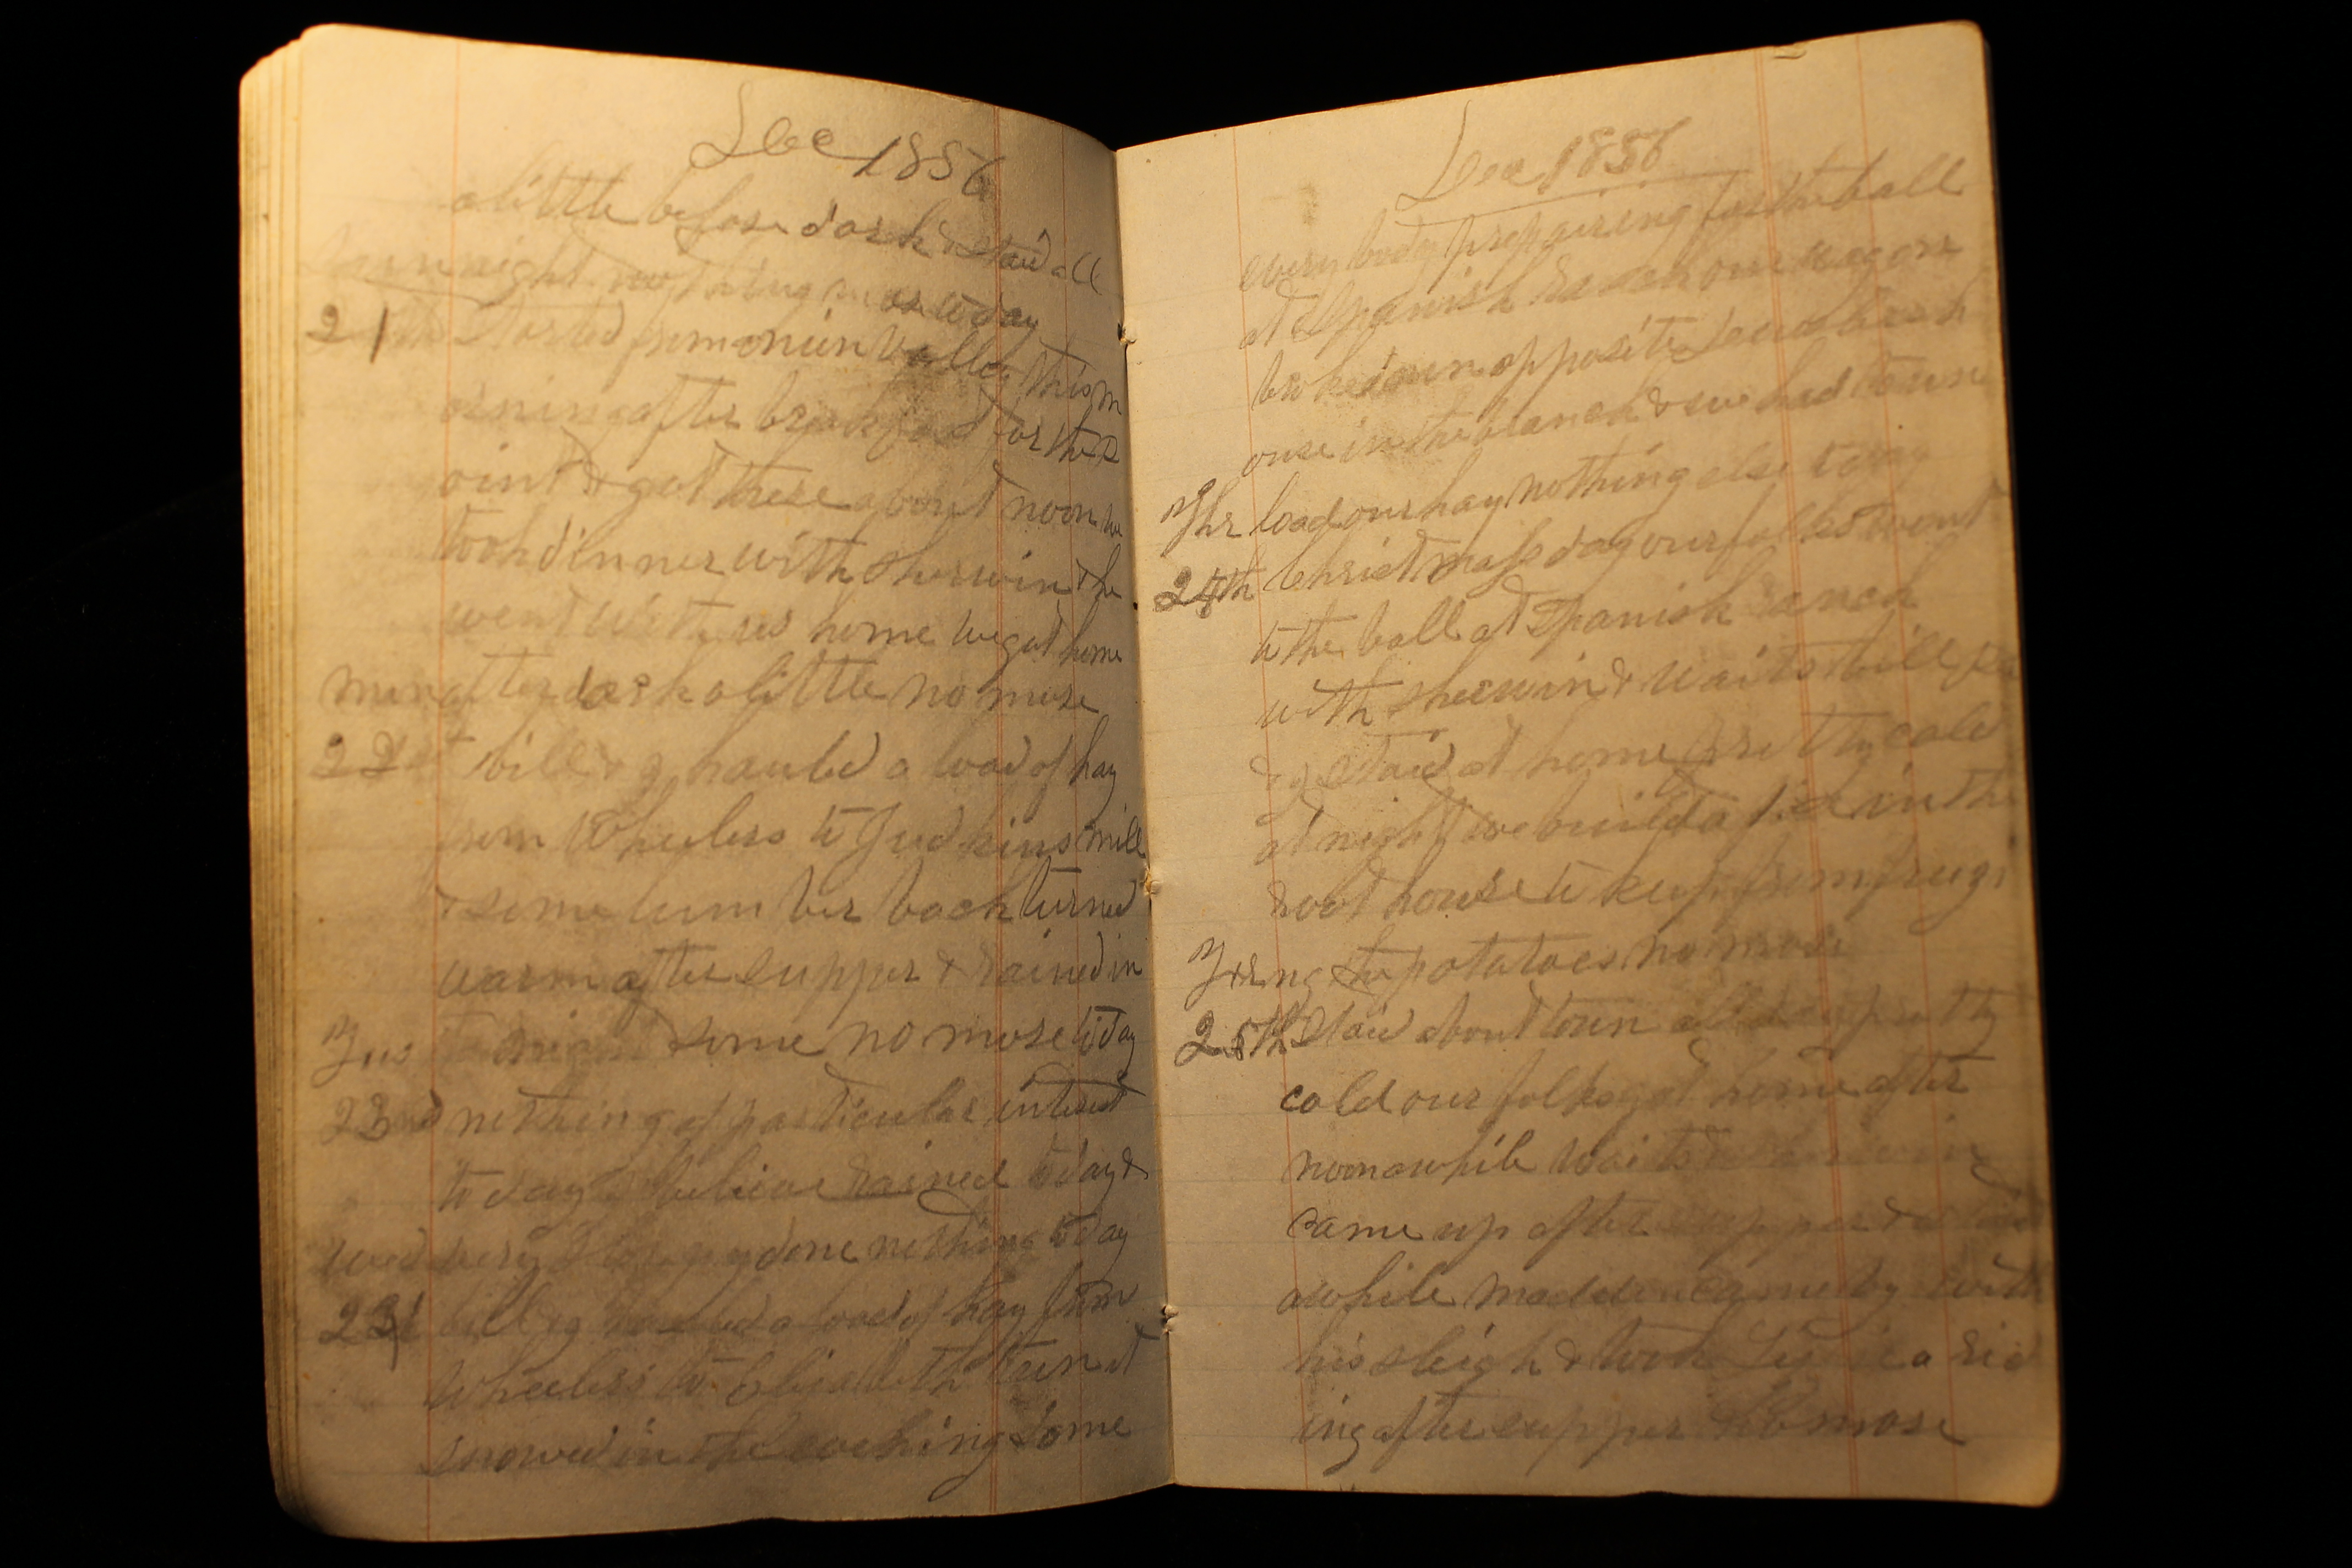 Dec 1856
a little before dark & staid all
night nothing more to day
21 Started from onion valley this m
orning after breakfast for the P
oint & got there about noon we
took dinner with Sherwin & he
went with us home we got home
mon after dark a little no more
22 bill & I hauled a load of hay
from Whelers to Judkins mill
& some lumber back turned
warm after supper & rained in
Tus some no more to day
23 nothing of particular interest
to day I believe rained to day &
wed very done nothing to day
23 bill & I hauled a load of hay from
Wheelers to Elizabeth town it
snowed in the evening some
Dec 1856
every body prepairing for the ball
at Spanish Ranch one wagon
broke down opposite
ouse in the branch & we had to un
Thr load our hay nothing else to day
24th Christmass day our folks went
to the ball at Spanish ranch
with Sherwin & Waits bill
& I staid at home pretty cold
at night we build a fire in the
root house to keep from freezi
Fri ng the potatoes no more
25th Staid about town all day pretty
cold our folks got home after
noon awhile Waits & Sherwin
came up after supper & staid
awhile madden came by with
his sleigh & took a rid
ing after supper No more